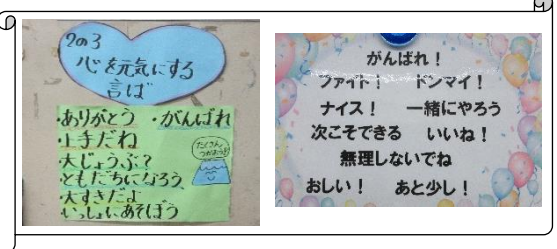 2の3
心を元気にする
言ば
・ありがとう ・がんばれ
・上手だね
・大じょうぶ?
・ともだちになろう
・大すきだよ
・いっしょにあそぼう
たくさん
つかおうね
がんばれ！
ファイト！ ドンマイ！
ナイス！ 一緒にやろう
次こそできる いいね！
無理しないでね
おしい！ あと少し！